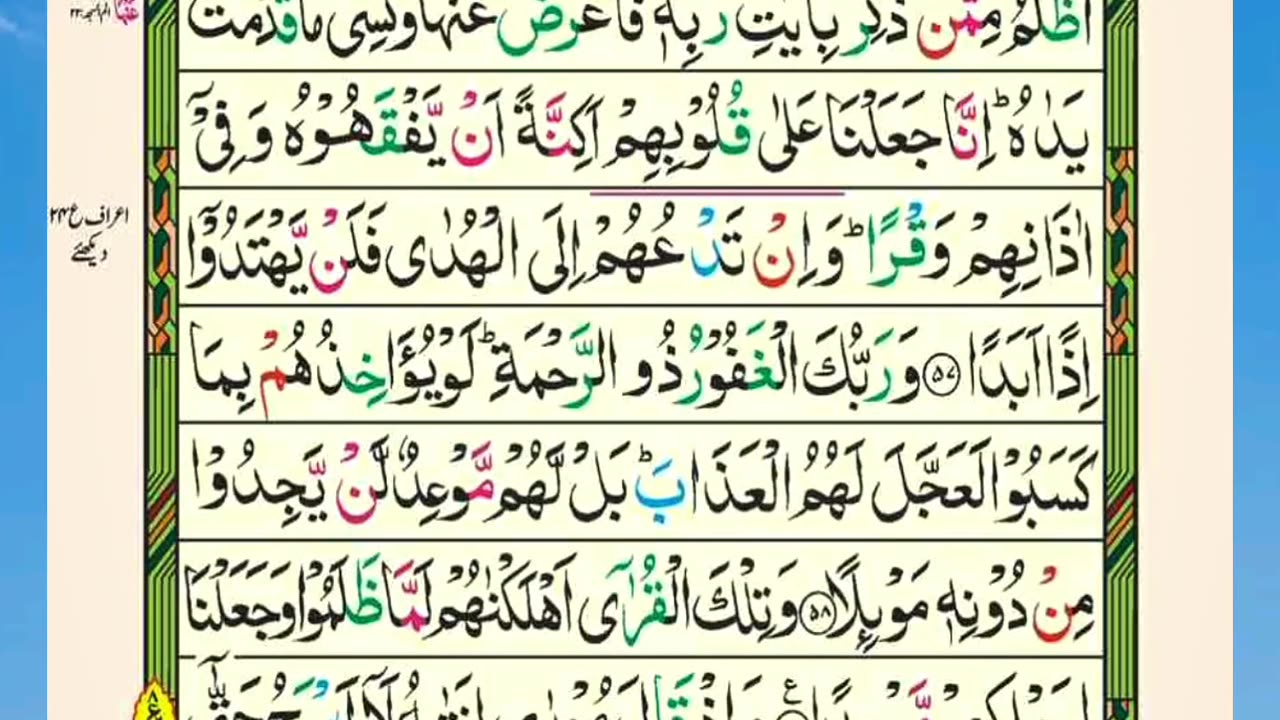 اَظْلَمُ مِمَّنْ ذُكِّرَ بِاٰيٰتِ رَبِّهٖ فَاَعْرَضَ عَنْهَا وَنَسِیَ مَا قَدَّمَتْ
يَدٰهُ ؕ اِنَّا جَعَلْنَا عَلٰى قُلُوْبِهِمْ اَكِنَّةً اَنْ يَّفْقَهُوْهُ وَ فِیْۤ
اٰذَانِهِمْ وَقْرًا ؕ وَاِنْ تَدْعُهُمْ اِلَى الْهُدٰى فَلَنْ يَّهْتَدُوْۤا
اِذًا اَبَدًا ۵۷ وَرَبُّكَ الْغَفُوْرُ ذُو الرَّحْمَةِ ؕ لَوْ يُؤَاخِذُهُمْ بِمَا
كَسَبُوْا لَعَجَّلَ لَهُمُ الْعَذَابَ ؕ بَلْ لَّهُمْ مَّوْعِدٌ لَّنْ يَّجِدُوْا
مِنْ دُوْنِهٖ مَوْئِلًا ۵۸ وَتِلْكَ الْقُرٰۤى اَهْلَكْنٰهُمْ لَمَّا ظَلَمُوْا وَجَعَلْنَا
اعراف ع ۲۴
دیکھئے